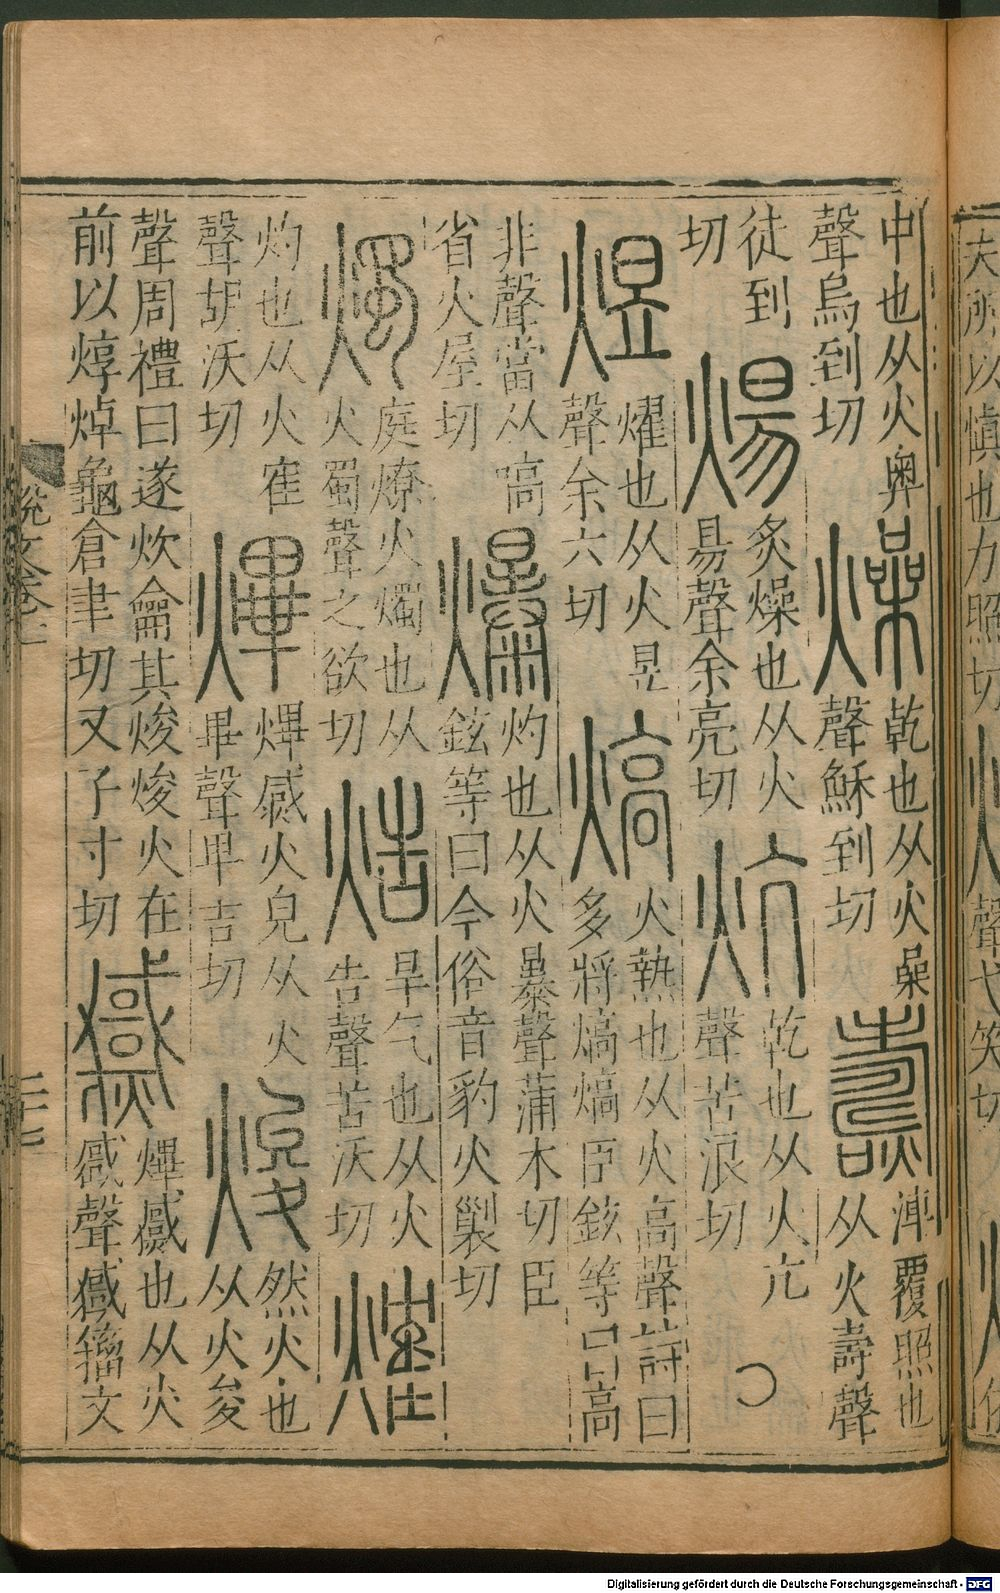 夫所以慎也力照切
聲弋笑切
中也从火奥
聲烏到切
燥
乾也从火喿
聲穌到切
燾
溥覆照也
从火壽聲
徒到
切
煬
炙燥也从火
昜聲余亮切
炕
乾也从火亢
聲苦浪切
煜
燿也从火昱
聲余六切
熇
火熱也从火高聲詩曰
多將熇熇臣鉉等曰高
非聲當从嗃
省火屋切
爆
灼也从火暴聲蒲木切臣
鉉等曰今俗音豹火製切
燭
庭燎火燭也从
火蜀聲之欲切
焅
旱气也从火
告聲苦沃切
灼也从火隺
聲胡沃切
熚
熚㷸火皃从火
畢聲卑吉切
焌
然火也
从火夋
聲周禮曰遂炊龠其焌焌火在
前以焞焯龜倉聿切又子寸切
㷸
熚㷸也从火
聲籒文
說文卷十
二十七
Digitalisierung gefördert durch die Deutsche Forschungsgemeinschaft - DFG